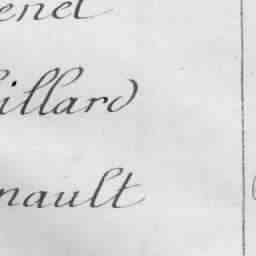 enel
illard
nault